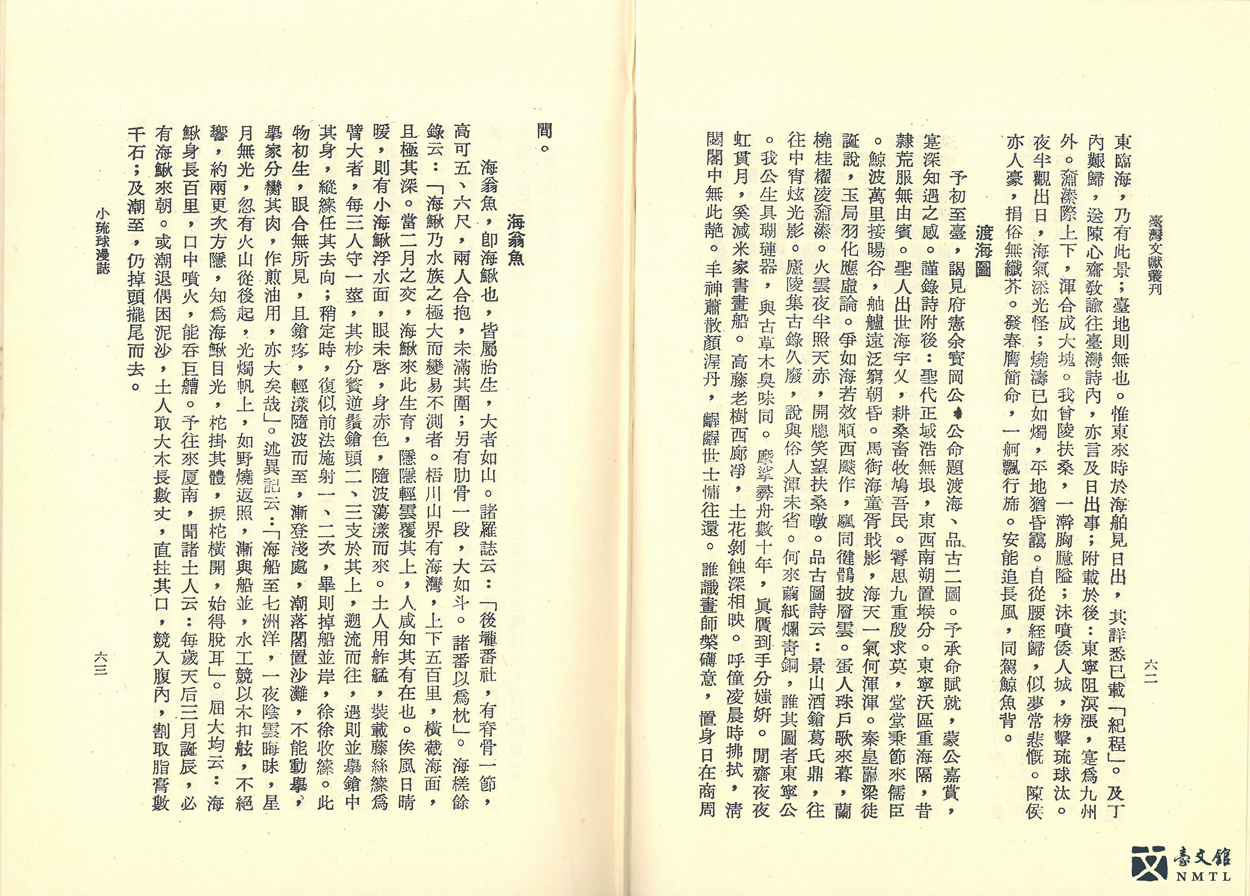 臺灣文獻叢刊
六二
東臨海，乃有此景；臺地則無也。惟東來時於海舶見日出，其詳悉已載「紀程」。及丁
內艱歸，送陳心齋敎諭往臺灣詩內，亦言及日出事；附載於後：東寧阻溟漲，寔爲九州
外。瀚溱際上下，渾合成大塊。我曾陵扶桑，一澣胸臆隘；沬噴倭人城，榜擊琉球汰。
夜半觀出日，海氣添光怪；燒濤已如燭，平地猶昏靄。自從腰絰歸，似夢常悲慨。陳侯
亦人豪，捐俗無纖芥。發春膺簡命，一舸飄行旆。安能追長風，同駕鯨魚背。
渡海圖
予初至臺，謁見府憲余寶岡公，公命題渡海、品古二圖。予承命賦就，蒙公嘉賞，
寔深知遇之感。謹錄詩附後：聖代正域浩無垠，東西南朔置堠分。東寧沃區重海隔，昔
隸荒服無由賓。聖人出世海宇乂，耕桑畜牧鳩吾民。睿思九重殷求莫，堂堂秉節來儒臣
。鯨波萬里接暘谷，舳艫遠泛窮朝昏。馬銜海童胥戢影，海天一氣何渾渾。秦皇羅梁徒
誕說，玉局羽化應虛論。爭如海若效順西飈作，颿同健鶻披層雲。蛋人珠戶歌來暮，蘭
橈桂櫂凌瀚溱。火雲夜半照天赤，開牕笑望扶桑暾。品古圖詩云：景山酒鎗葛氏鼎，往
往中宵炫光影。廬陵集古錄久廢，說與俗人渾未省。何來繭紙爛靑銅，誰其圖者東寧公
。我公生具瑚璉器，與古草木臭味同。摩挲彝舟數十年，眞贋到手分媸姸。閒齋夜夜
虹貫月，奚減米家書畫船。高藤老樹西廊凈，土花剝蝕深相映。呼僮凌晨時拂拭，淸
閟閣中無此靘。丰神蕭散顏渥丹，齷齪世士慵往還。誰識畫師槃礴意，置身日在商周
間。
海翁魚
海翁魚，卽海鰍也，皆屬胎生，大者如山。諸羅誌云：「後壠番社，有脊骨一節，
高可五、六尺，兩人合抱，未滿其圍；另有肋骨一段，大如斗。諸番以爲枕」。海槎餘
錄云：「海鰍乃水族之極大而變易不測者。梧川山界有海灣，上下五百里，橫截海面，
且極其深。當二月之交，海鰍來此生育，隱隱輕雲覆其上，人咸知其有在也。俟風日晴
暖，則有小海鰍浮水面，眼未啓，身赤色，隨波蕩漾而來。土人用舴艋，裝載藤絲索爲
臂大者，每三人守一莖，其杪分贅逆鬚鎗頭二、三支於其上，遡流而往，遇則並擧鎗中
其身，縱索任其去向；稍定時，復似前法施射一、二次，畢則掉船並岸，徐徐收索。此
物初生，眼合無所見，且鎗疼，輕漾隨波而至，漸登淺處，潮落閣置沙灘，不能動擧，
擧家分臠其肉，作煎油用，亦大矣哉」。述異記云：「海船至七洲洋，一夜陰雲晦昧，星
月無光，忽有火山從後起，光燭帆上，如野燒返照，漸與船並，水工競以木扣舷，不絕
響，約兩更次方隱，知爲海鰍目光，柁掛其體，扳柁橫開，始得脫耳」。屈大均云：海
鰍身長百里，口中噴火，能呑巨艚。予往來厦南，聞諸土人云：每歲天后三月誕辰，必
有海鰍來朝。或潮退偶困泥沙，土人取大木長數丈，直拄其口，競入腹內，割取脂膏數
千石；及潮至，仍掉頭擺尾而去。
小琉球漫誌
六三
臺文館
NMTL